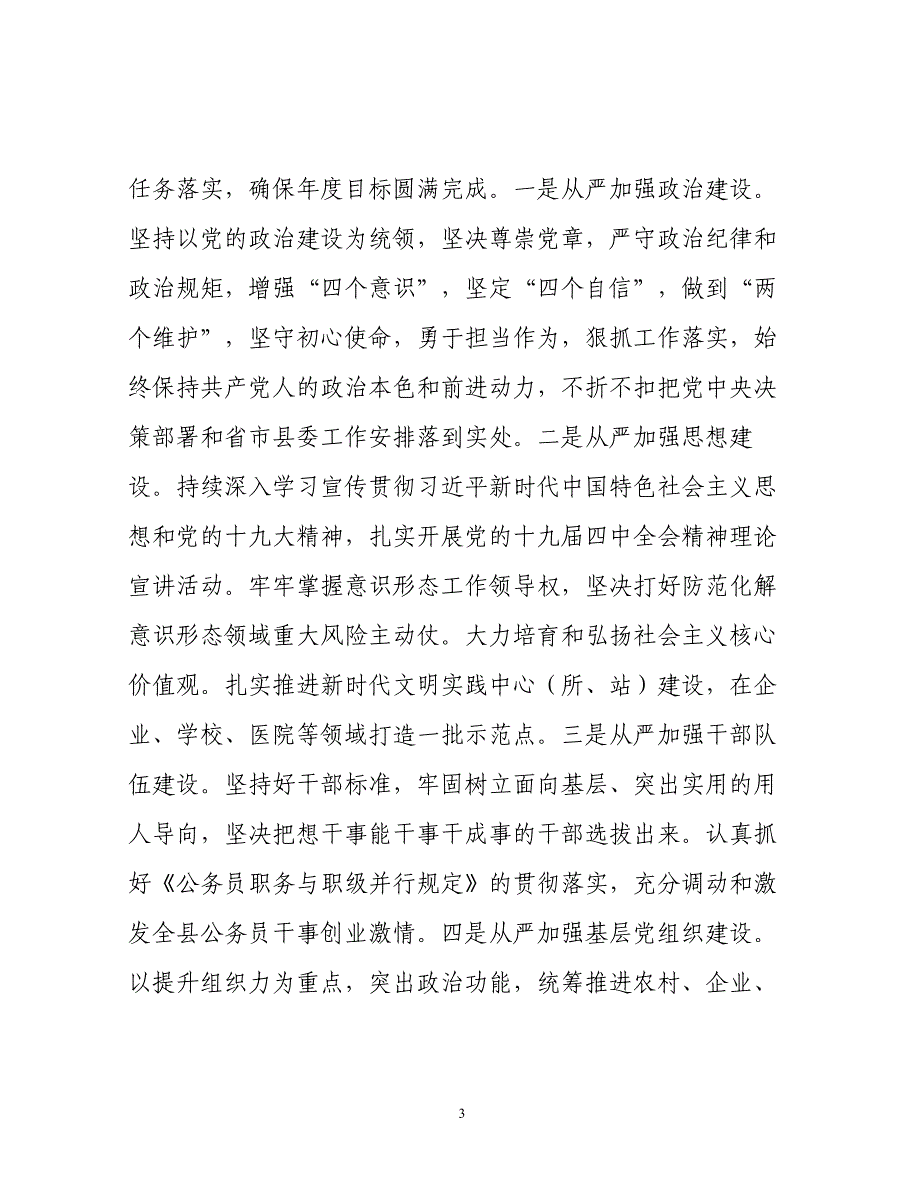 任务落实，确保年度目标圆满完成。一是从严加强政治建设。
坚持以党的政治建设为统领，坚决尊崇党章，严守政治纪律和
政治规矩，增强“四个意识”，坚定“四个自信”，做到“两
个维护”，坚守初心使命，勇于担当作为，狠抓工作落实，始
终保持共产党人的政治本色和前进动力，不折不扣把党中央决
策部署和省市县委工作安排落到实处。二是从严加强思想建
设。持续深入学习宣传贯彻习近平新时代中国特色社会主义思
想和党的十九大精神，扎实开展党的十九届四中全会精神理论
宣讲活动。牢牢掌握意识形态工作领导权，坚决打好防范化解
意识形态领域重大风险主动仗。大力培育和弘扬社会主义核心
价值观。扎实推进新时代文明实践中心（所、站）建设，在企
业、学校、医院等领域打造一批示范点。三是从严加强干部队
伍建设。坚持好干部标准，牢固树立面向基层、突出实用的用
人导向，坚决把想干事能干事干成事的干部选拔出来。认真抓
好《公务员职务与职级并行规定》的贯彻落实，充分调动和激
发全县公务员干事创业激情。四是从严加强基层党组织建设。
以提升组织力为重点，突出政治功能，统筹推进农村、企业、
3